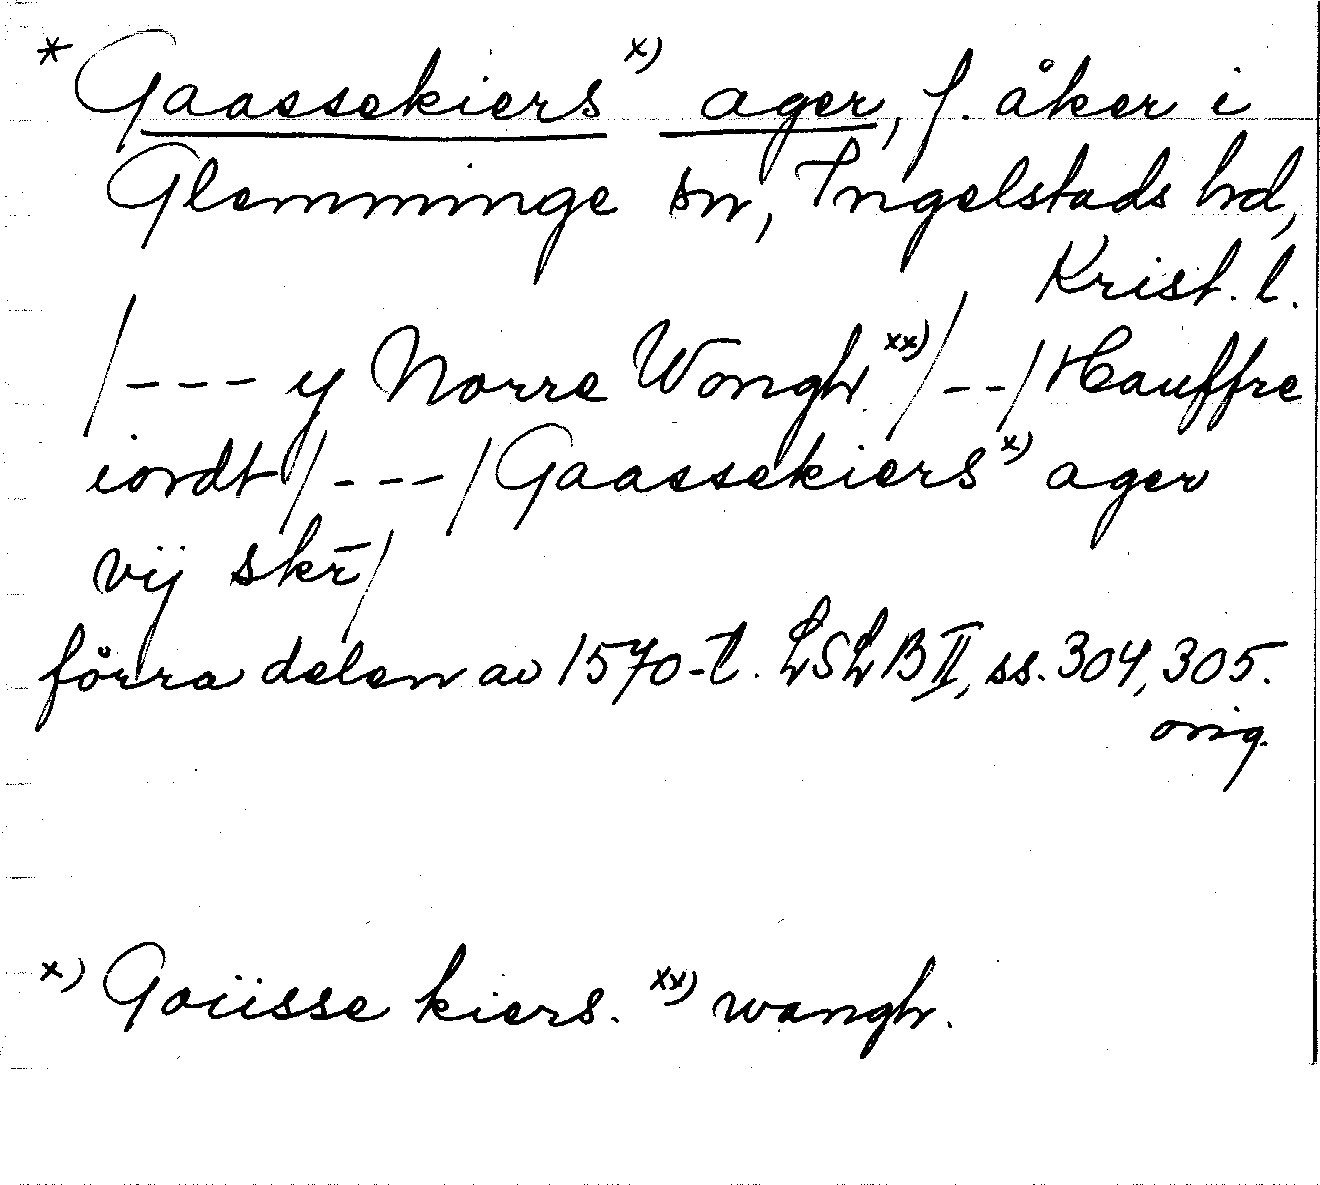 * Gaassekiers x) ager, f. åker i
Glemminge sn, Ingelstads hd,
Krist. l.
/--- y Norre Wongh xx)/--/Hauffre
iordt/---/Gaassekiers x) ager
vij skr̄/
förra delen av 1570-t. LSLB II, ss. 304, 305.
orig.
x) Goüsse kiers. xx) wangh.